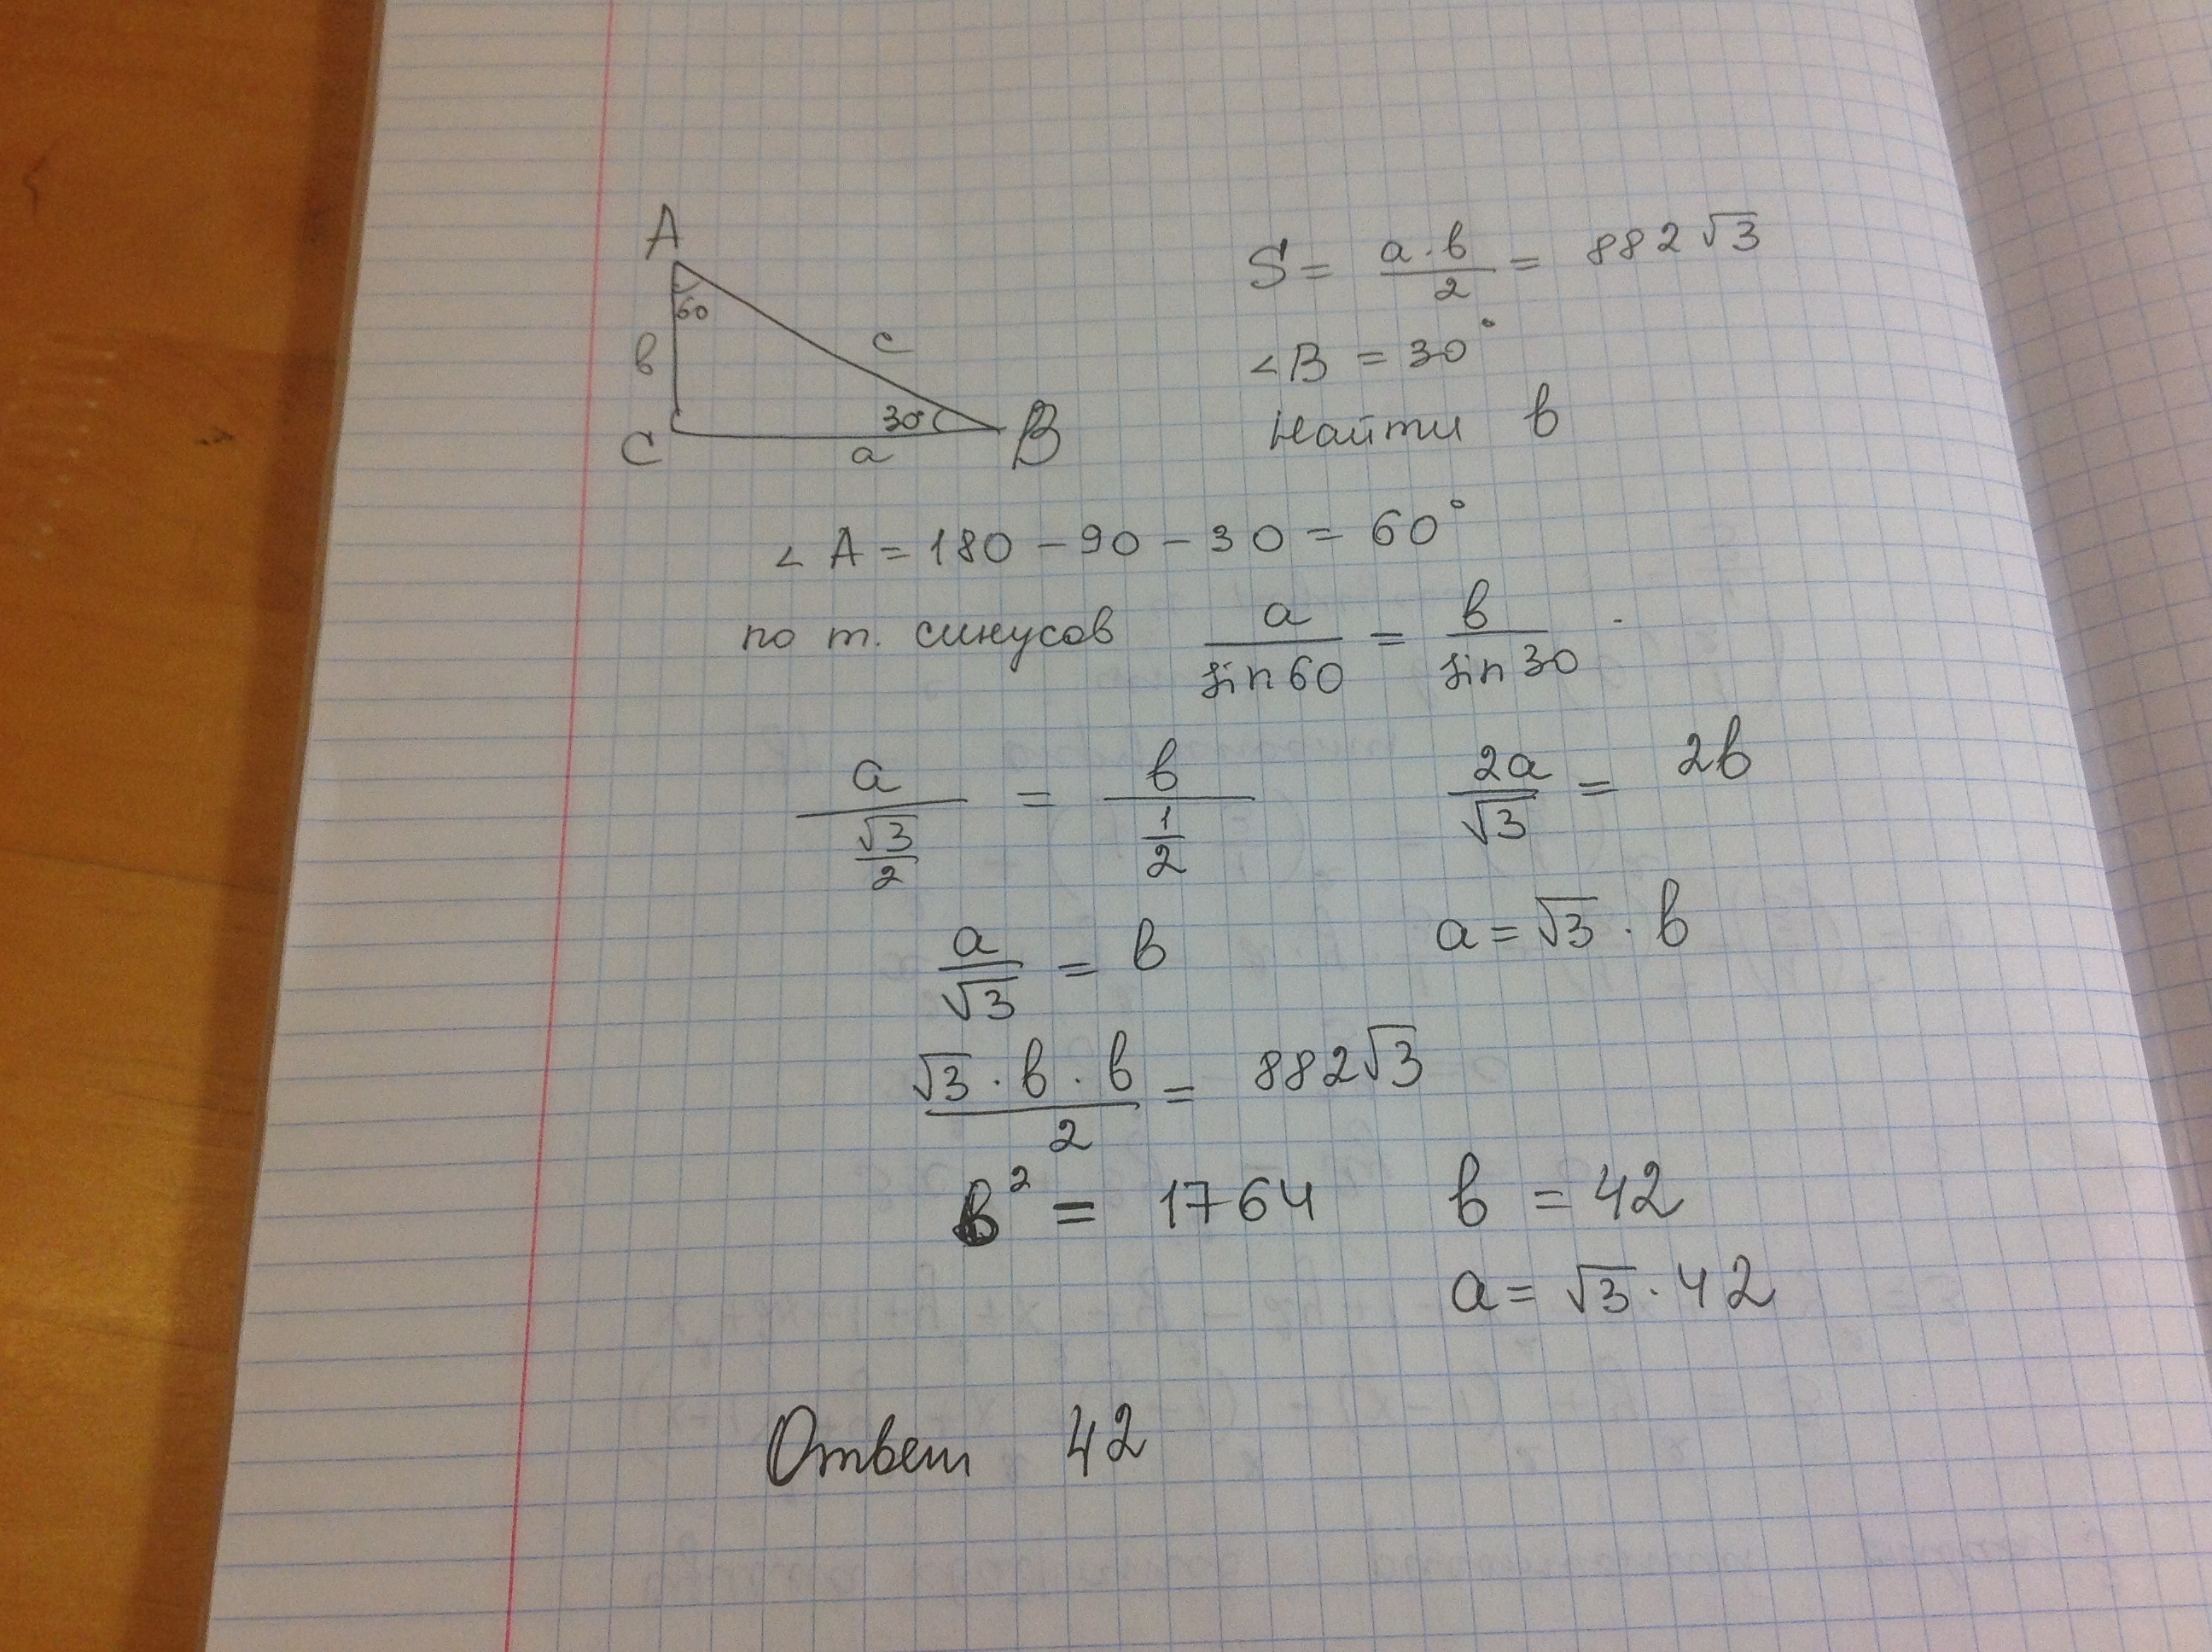 A
60
в
c
C
a
30°
B
S = a·в/2 = 882√3
∠B = 30°
Найти в
∠A = 180 - 90 - 30 = 60°
по т. синусов a/sin60 = в/sin30
a/(√3/2) = в/(1/2) 2a/√3 = 2в
a/√3 = в a = √3 · в
√3 · в · в/2 = 882√3
в² = 1764 в = 42
a = √3 · 42
Ответ 42